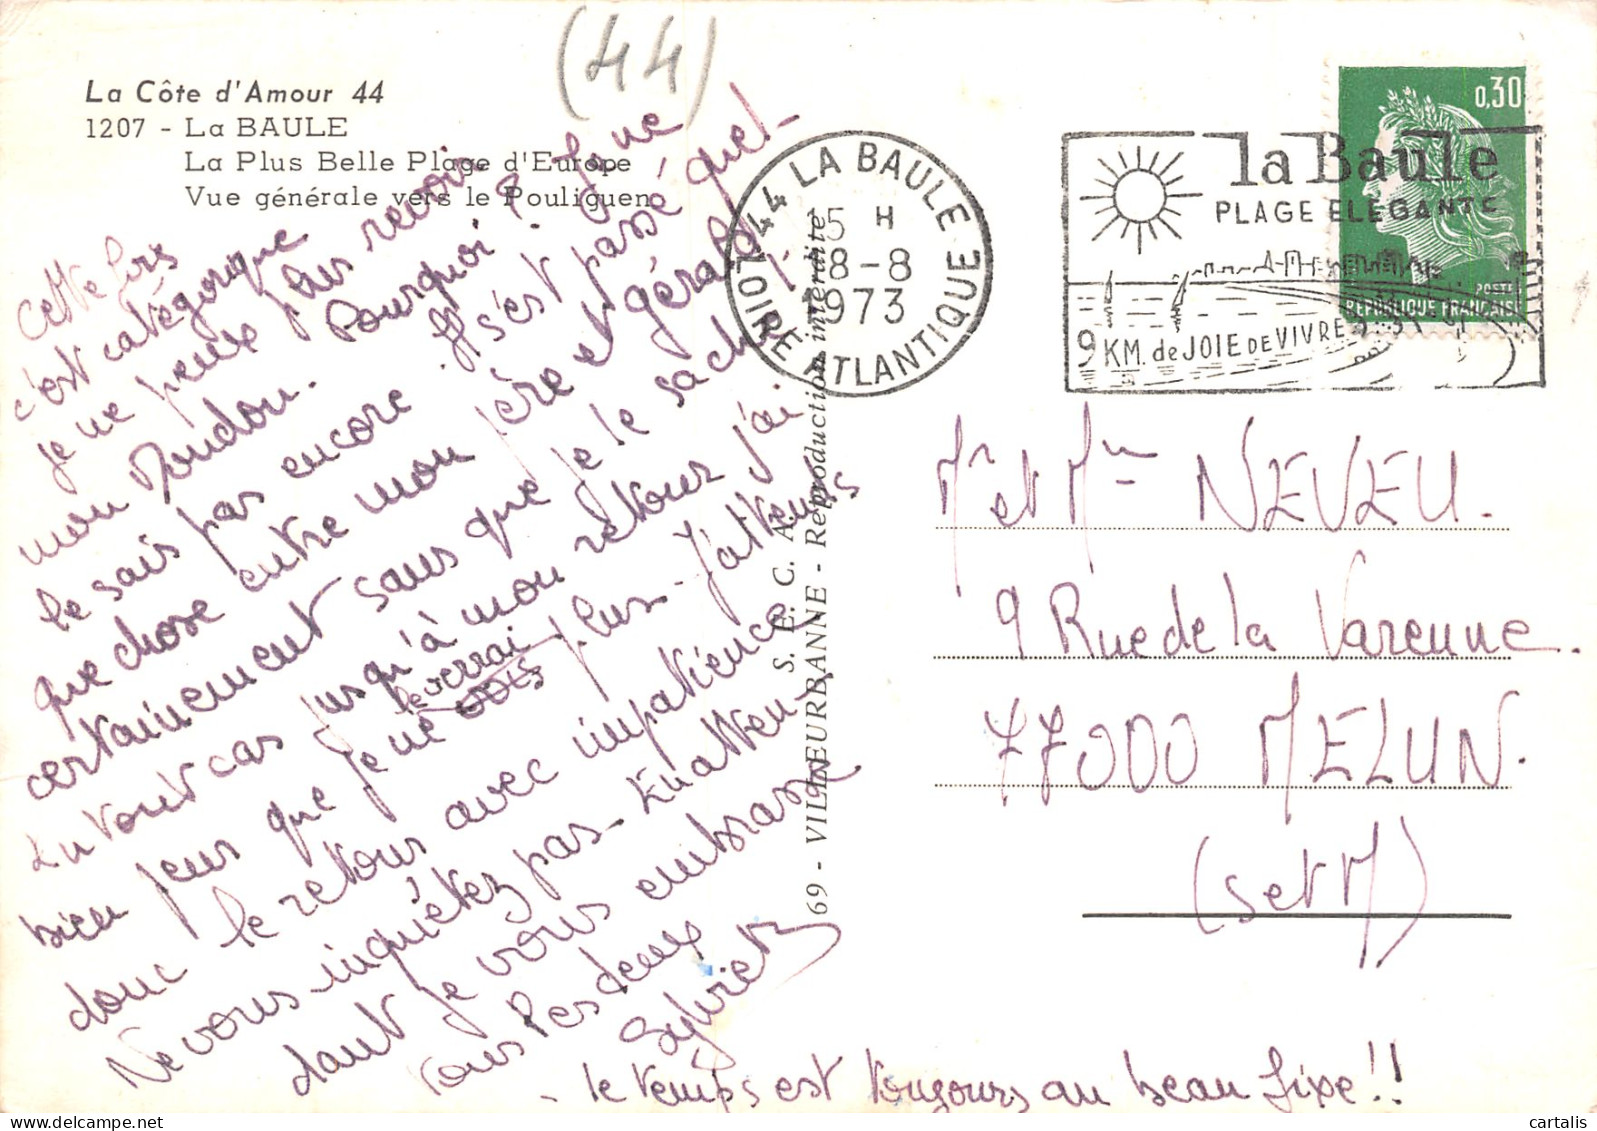 (44)
La Côte d'Amour 44
1207 - La BAULE
La Plus Belle Plage d'Europe
Vue générale vers le Pouliguen
Cette fois
c'est catégorique
je ne peux plus revoir
mon Doudou. Pourquoi ? Je ne
le sais pas encore. Il s'est passé quel-
que chose entre mon père et gérald
certainement sans que je le sache !
En tout cas jusqu'à mon retour j'ai
bien peur que je ne le verrai plus - J'attends
donc le retour avec impatience
Ne vous inquiétez pas - En atten-
dant je vous embrasse
tous les deux
Sylviette
- le temps est toujours au beau fixe !!
69 - VILLEURBANNE - Reproduction interdite
S. E. C. A.
44 LA BAULE
LOIRE ATLANTIQUE
15 H
8-8
1973
la Baule
PLAGE ELEGANTE
9 KM. de JOIE DE VIVRE
0,30
POSTE
REPUBLIQUE FRANÇAISE
Mr et Mme NEVEU.
9 Rue de la Varenne.
77000 MELUN.
(S et M)
cartalis